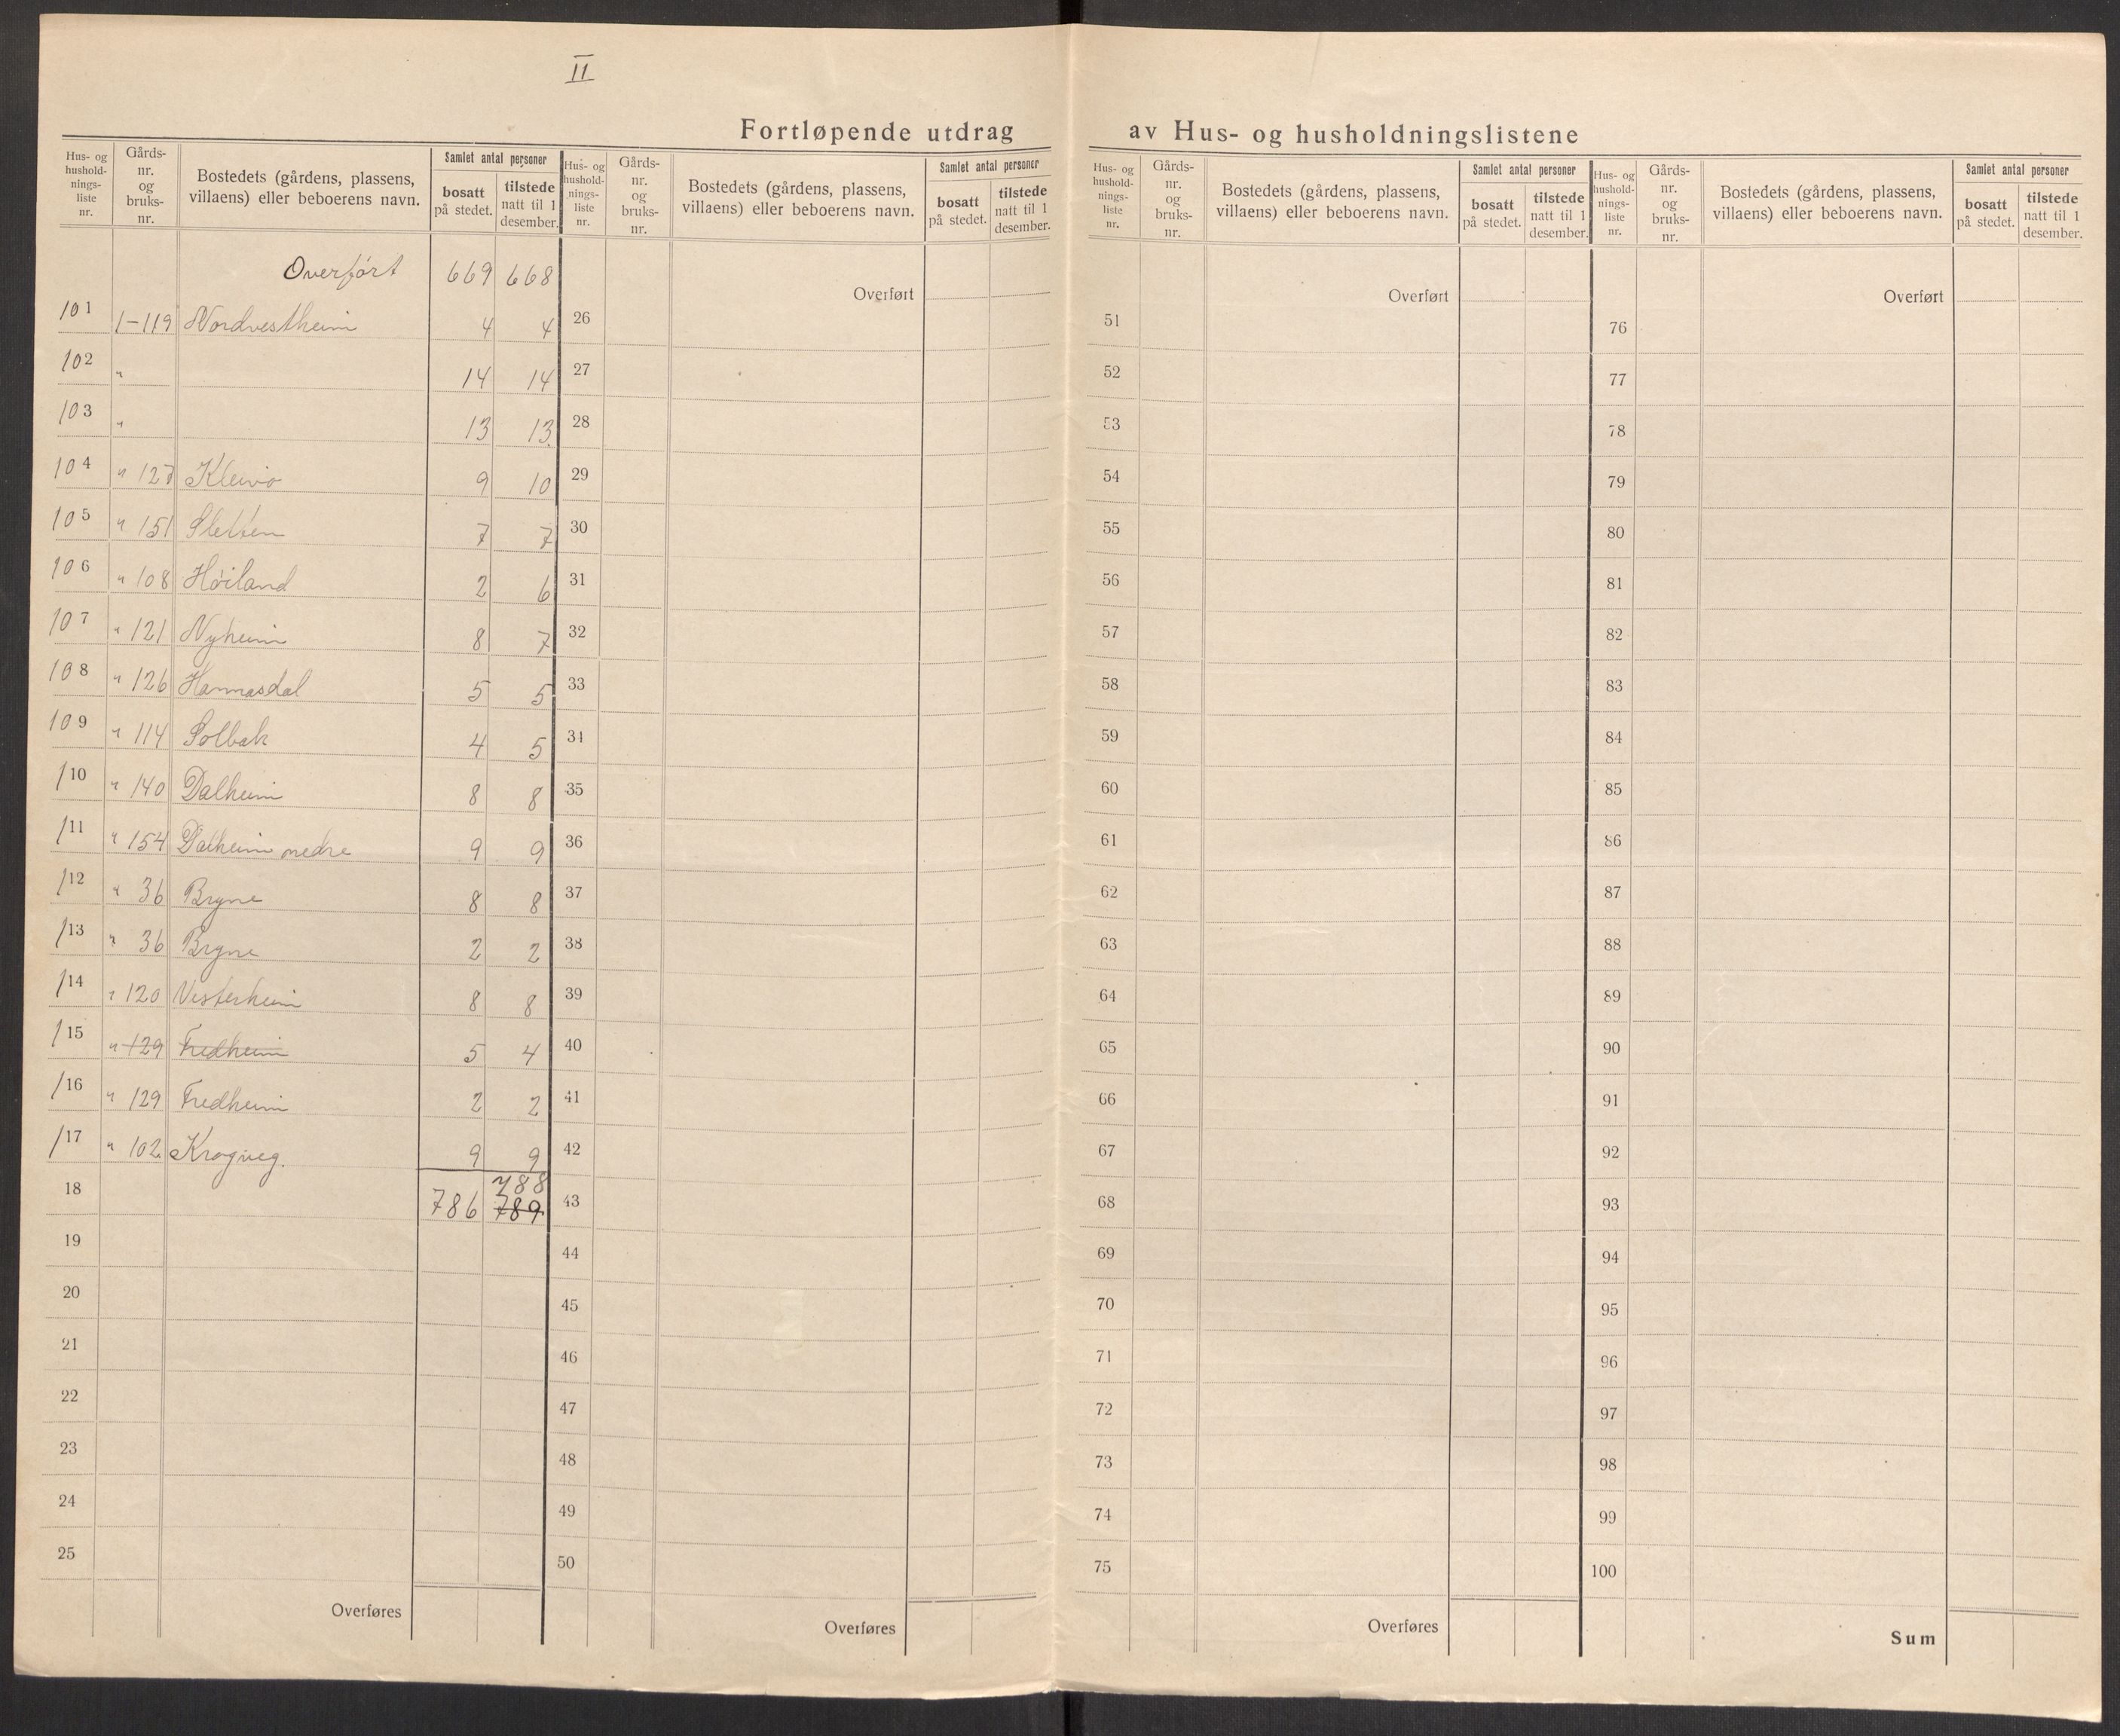 II
Fortløpende utdrag av Hus- og husholdningslistene
Hus- og hushold- nings- liste nr.
Gårds- nr. og bruks- nr.
Bostedets (gårdens, plassens, villaens) eller beboerens navn.
Samlet antal personer
bosatt på stedet.
tilstede natt til 1 desember.
Overført 669 668
101 1-119 Nordvestheim 4 4
102 " 14 14
103 " 13 13
104 " 127 Kleivo 9 10
105 " 151 Sletten 7 7
106 " 108 Høiland 2 6
107 " 121 Nyheim 8 7
108 " 126 Hannasdal 5 5
109 " 114 Solbak 4 5
110 " 140 Dalheim 8 8
111 " 154 Dalheim nedre 9 9
112 " 36 Bryne 8 8
113 " 36 Bryne 2 2
114 " 120 Vesterheim 8 8
115 " 129 Fredheim 5 4
116 " 129 Fredheim 2 2
117 " 102 Krogveg. 9 9
788
18 786 789
19
20
21
22
23
24
25
Overføres
Hus- og hushold- nings- liste nr.
Gårds- nr. og bruks- nr.
Bostedets (gårdens, plassens, villaens) eller beboerens navn.
Samlet antal personer
bosatt på stedet.
tilstede natt til 1 desember.
Overført
26
27
28
29
30
31
32
33
34
35
36
37
38
39
40
41
42
43
44
45
46
47
48
49
50
Overføres
Hus- og hushold- nings- liste nr.
Gårds- nr. og bruks- nr.
Bostedets (gårdens, plassens, villaens) eller beboerens navn.
Samlet antal personer
bosatt på stedet.
tilstede natt til 1 desember.
Overført
51
52
53
54
55
56
57
58
59
60
61
62
63
64
65
66
67
68
69
70
71
72
73
74
75
Overføres
Hus- og hushold- nings- liste nr.
Gårds- nr. og bruks- nr.
Bostedets (gårdens, plassens, villaens) eller beboerens navn.
Samlet antal personer
bosatt på stedet.
tilstede natt til 1 desember.
Overført
76
77
78
79
80
81
82
83
84
85
86
87
88
89
90
91
92
93
94
95
96
97
98
99
100
Sum